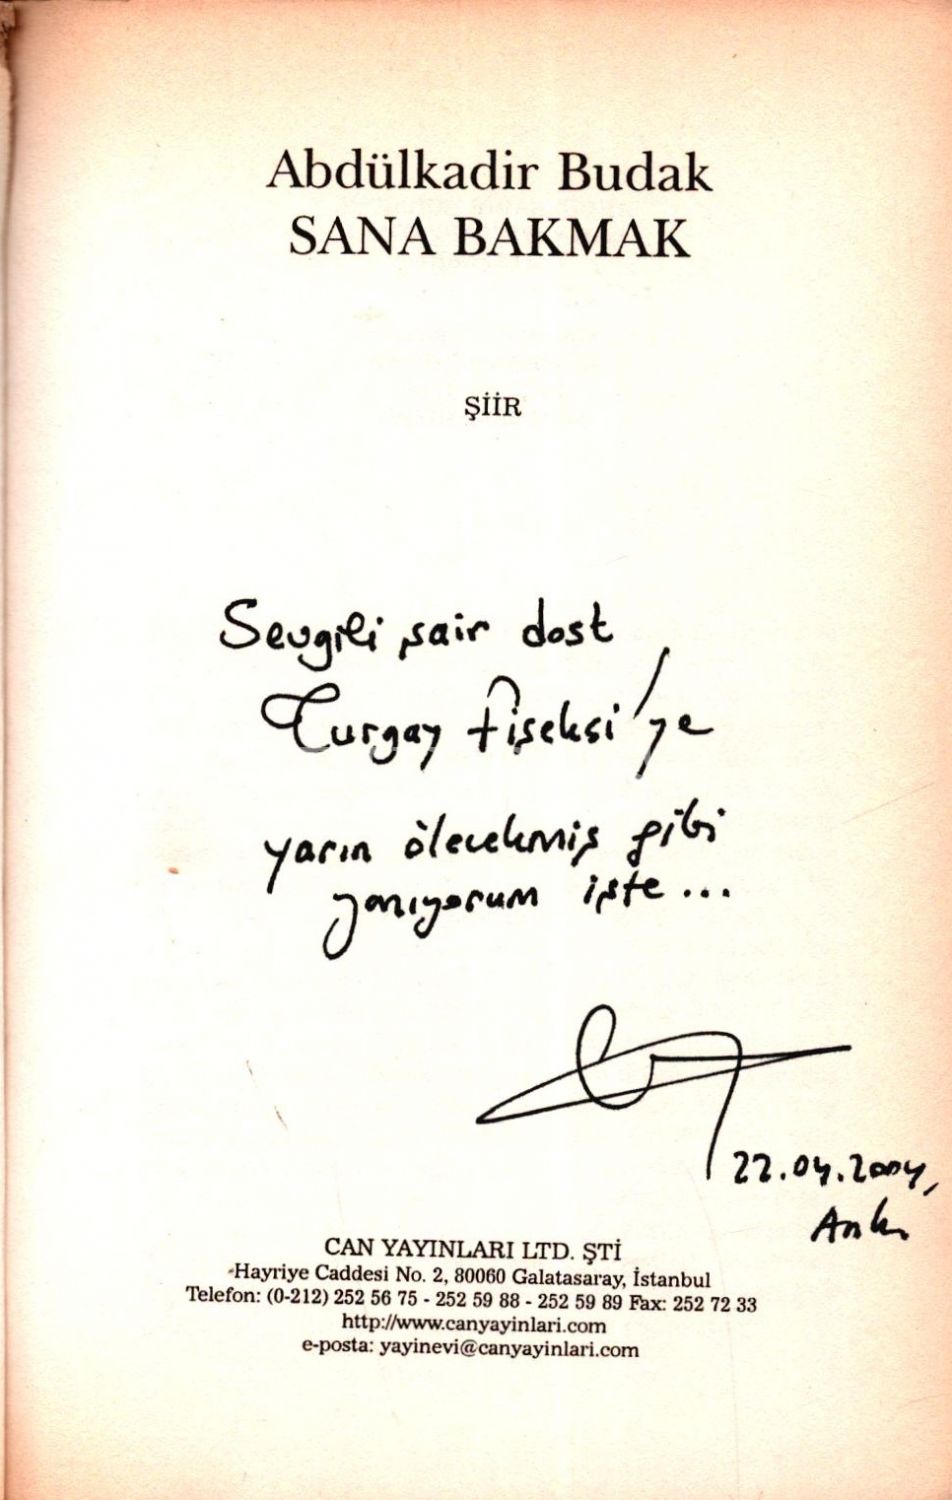 Abdülkadir Budak
SANA BAKMAK
ŞİİR
Sevgili şair dost
Turgay Fişekçi'ye
yarın ölecekmiş gibi
yanıyorum işte...
22.04.2004,
Ank.
CAN YAYINLARI LTD. ŞTİ
Hayriye Caddesi No. 2, 80060 Galatasaray, İstanbul
Telefon: (0-212) 252 56 75 - 252 59 88 - 252 59 89 Fax: 252 72 33
http://www.canyayinlari.com
e-posta: yayinevi@canyayinlari.com